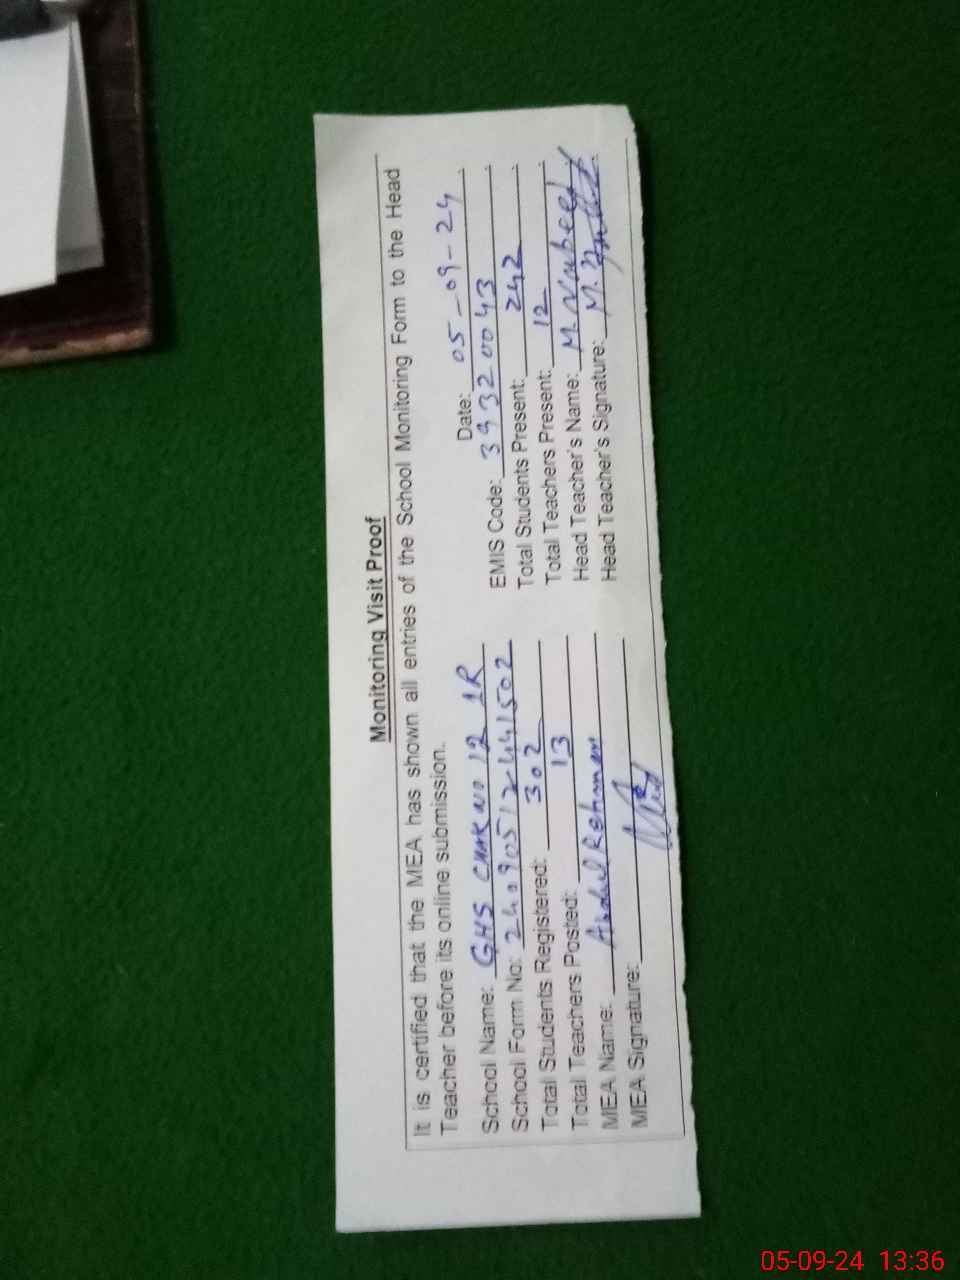 Monitoring Visit Proof
It is certified that the MEA has shown all entries of the School Monitoring Form to the Head
Teacher before its online submission.
Date: 05-09-24
School Name: GHS CHAK NO 12 1R EMIS Code: 39320043
School Form No: 240905124441502 Total Students Present: 242
Total Students Registered: 302 Total Teachers Present: 12
Total Teachers Posted: 13 Head Teacher's Name: M. Nabeel
MEA Name: Abdul Rehman Head Teacher's Signature:
MEA Signature:
05-09-24 13:36